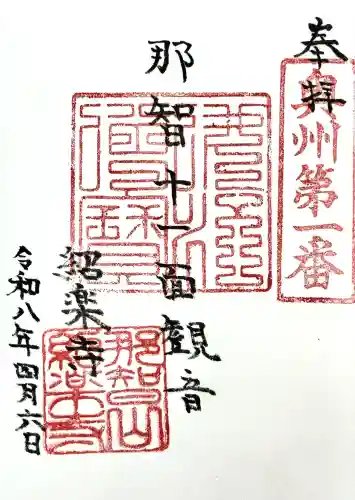 奉拝
奥州第一番
那智十一面観音
紹楽寺
那智山
紹楽寺
令和八年四月六日